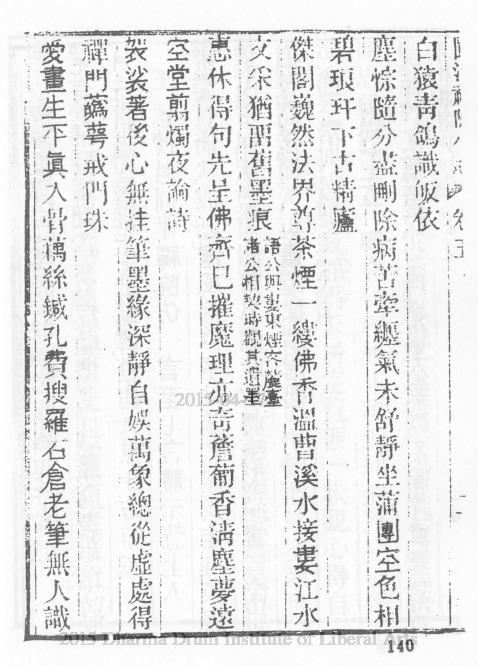 白猿靑鴿識皈依
塵悰隨分盡刪除病苦牽纏氣未舒靜坐蒲團空色相
碧琅玕下古精廬
傑閣巍然法界尊茶煙一縷佛香溫曹溪水接婁江水
文采猶留舊墨痕
語公與婁東煙客麓臺
諸公相契時觀其遺墨
惠休得句先呈佛齊已摧魔理亦奇薝蔔香淸塵夢遠
空堂翦燭夜論詩
袈裟著後心無挂筆墨緣深靜自娛萬象總從虛處得
禪門薝蔔戒門珠
愛畫生平眞入骨藕絲鍼孔費搜羅石倉老筆無人識
2015 Dharma Drum Institute of Liberal Arts
140